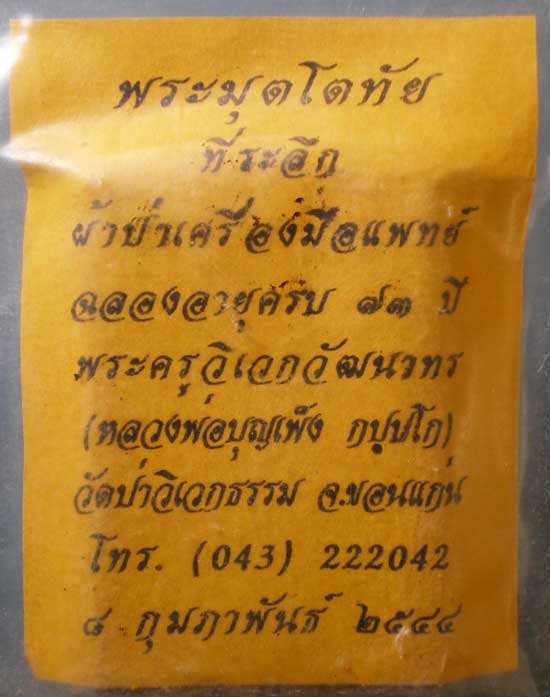 พระมุตโตทัย
ที่ระลึก
ผ้าป่าเครื่องมือแพทย์
ฉลองอายุครบ ๗๓ ปี
พระครูวิเวกวัฒนาทร
(หลวงพ่อบุญเพ็ง กปฺปโก)
วัดป่าวิเวกธรรม จ.ขอนแก่น
โทร. (043) 222042
๘ กุมภาพันธ์ ๒๕๔๔